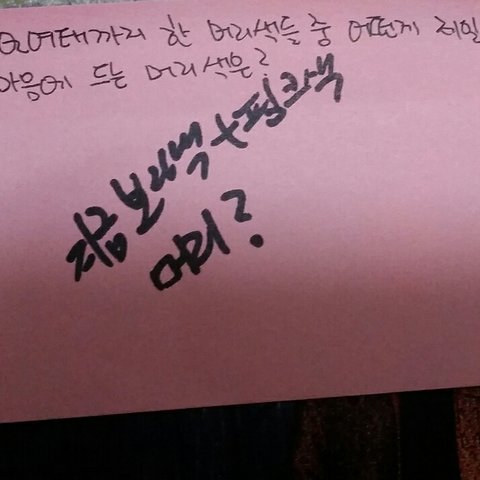 여태까지 한 머리색들 중 어떤게 제일
마음에 드는 머리색은?
지금 보라색+핑크색
머리?